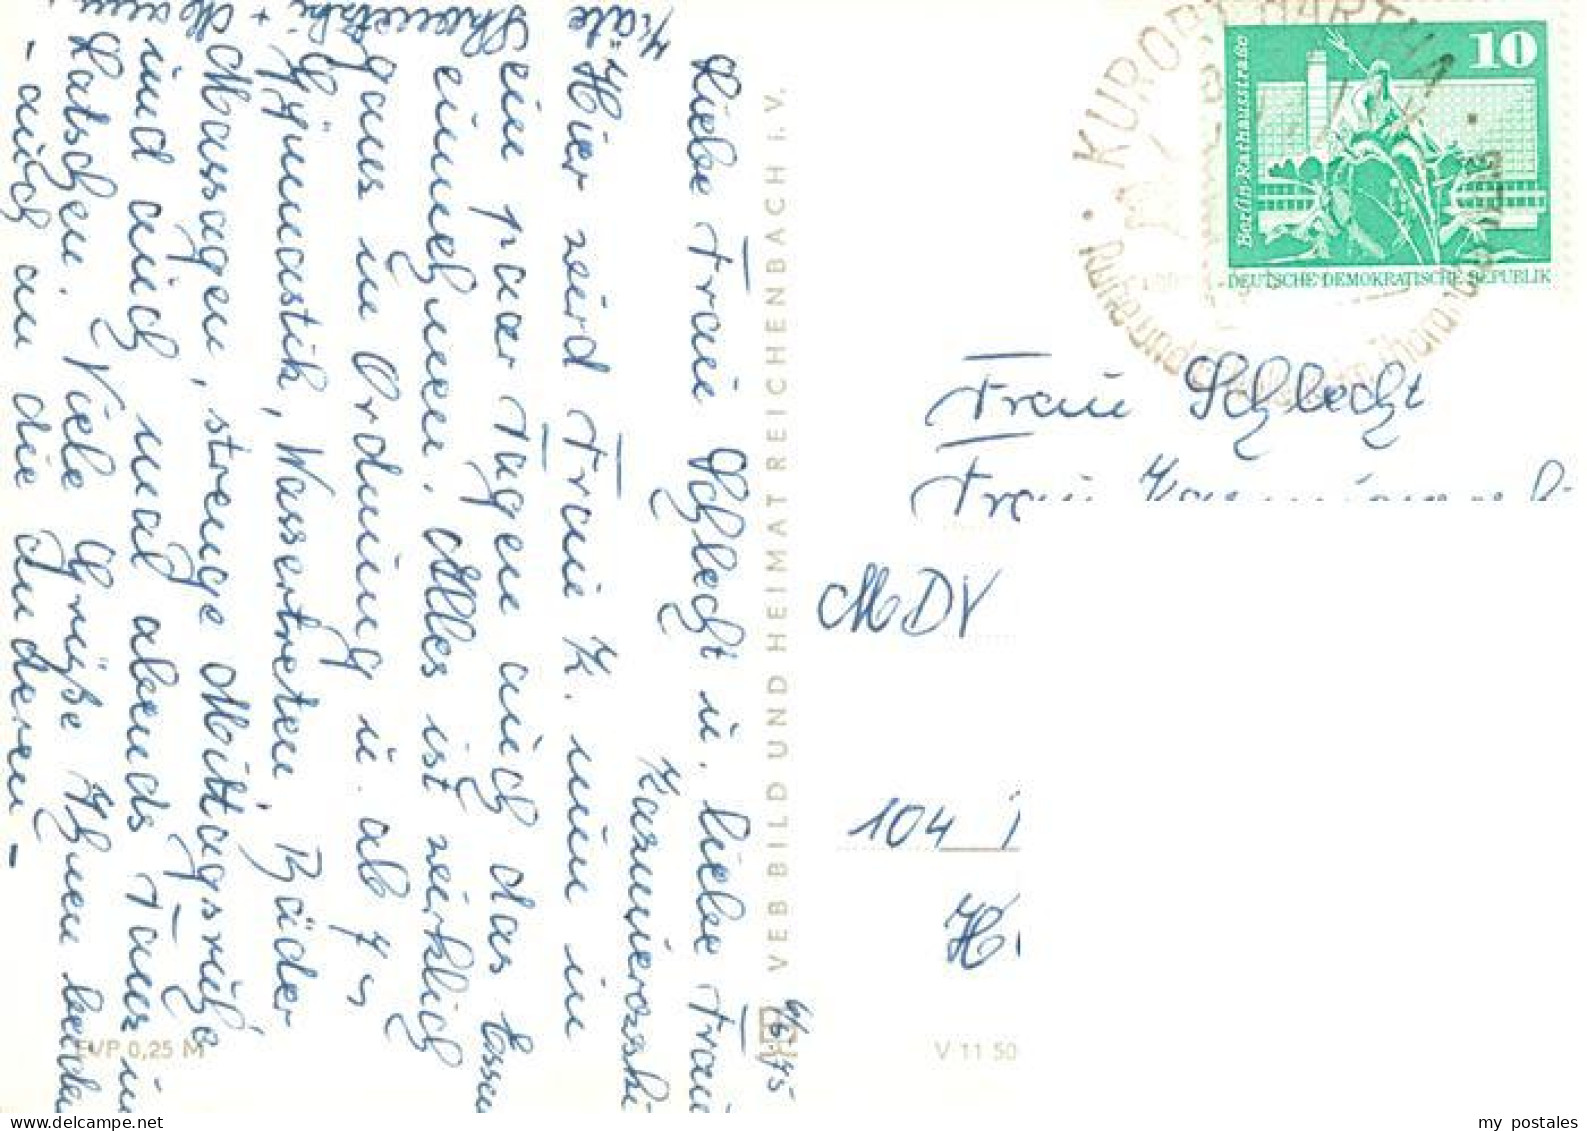 6/6.75
Liebe Frau Schlecht u. liebe Frau
Kasmierozski
Hier wird Frau K. nun in
ein paar Tagen auch das Essen
einnehmen. Alles ist wirklich
ganz in Ordnung u. ab 7
Gymnastik, Wassertreten, Bäder
Massagen, strenge Mittagsruhe
und auch mal abends Tanz u
Latschen. Viele Grüße Ihnen beiden
- auch an die Anderen -
VEB BILD UND HEIMAT REICHENBACH I. V.
EVP 0,25 M
V 11 50
KURORT HARTHA
Berlin-Rathausstraße
10
DEUTSCHE DEMOKRATISCHE REPUBLIK
Frau Schlecht
Frau
MDV
104
my postales